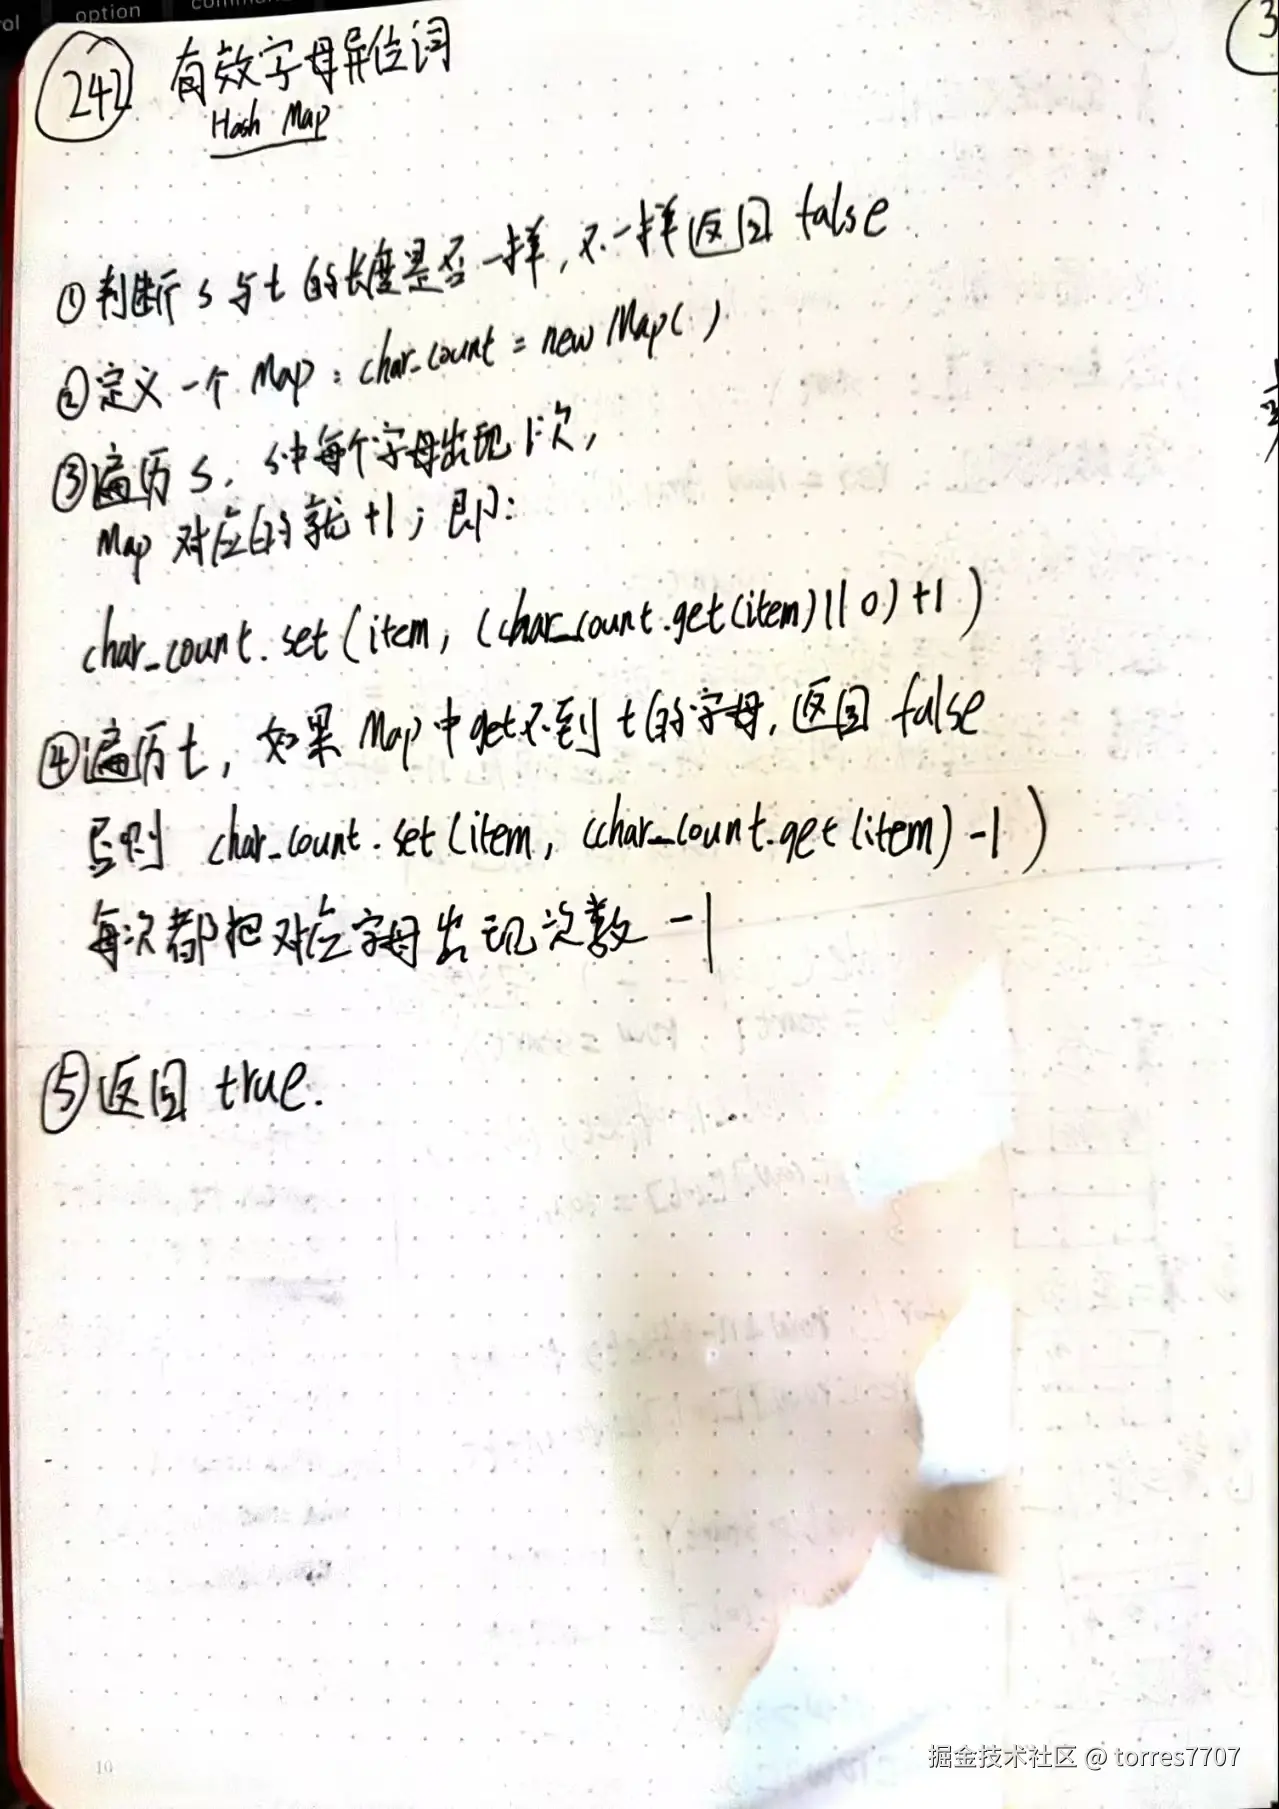 option
242 有效字母异位词
Hash Map
①判断 s 与 t 的长度是否一样,不一样返回 false
②定义一个 Map: char_count = new Map()
③遍历 s. s中每个字母出现1次,
Map 对应的就+1; 即:
char_count.set(item, (char_count.get(item)||0)+1)
④遍历 t, 如果 Map 中get不到 t 的字母, 返回 false
否则 char_count.set(item, (char_count.get(item)-1)
每次都把对应字母出现次数 -1
⑤返回 true.
10
掘金技术社区 @ torres7707